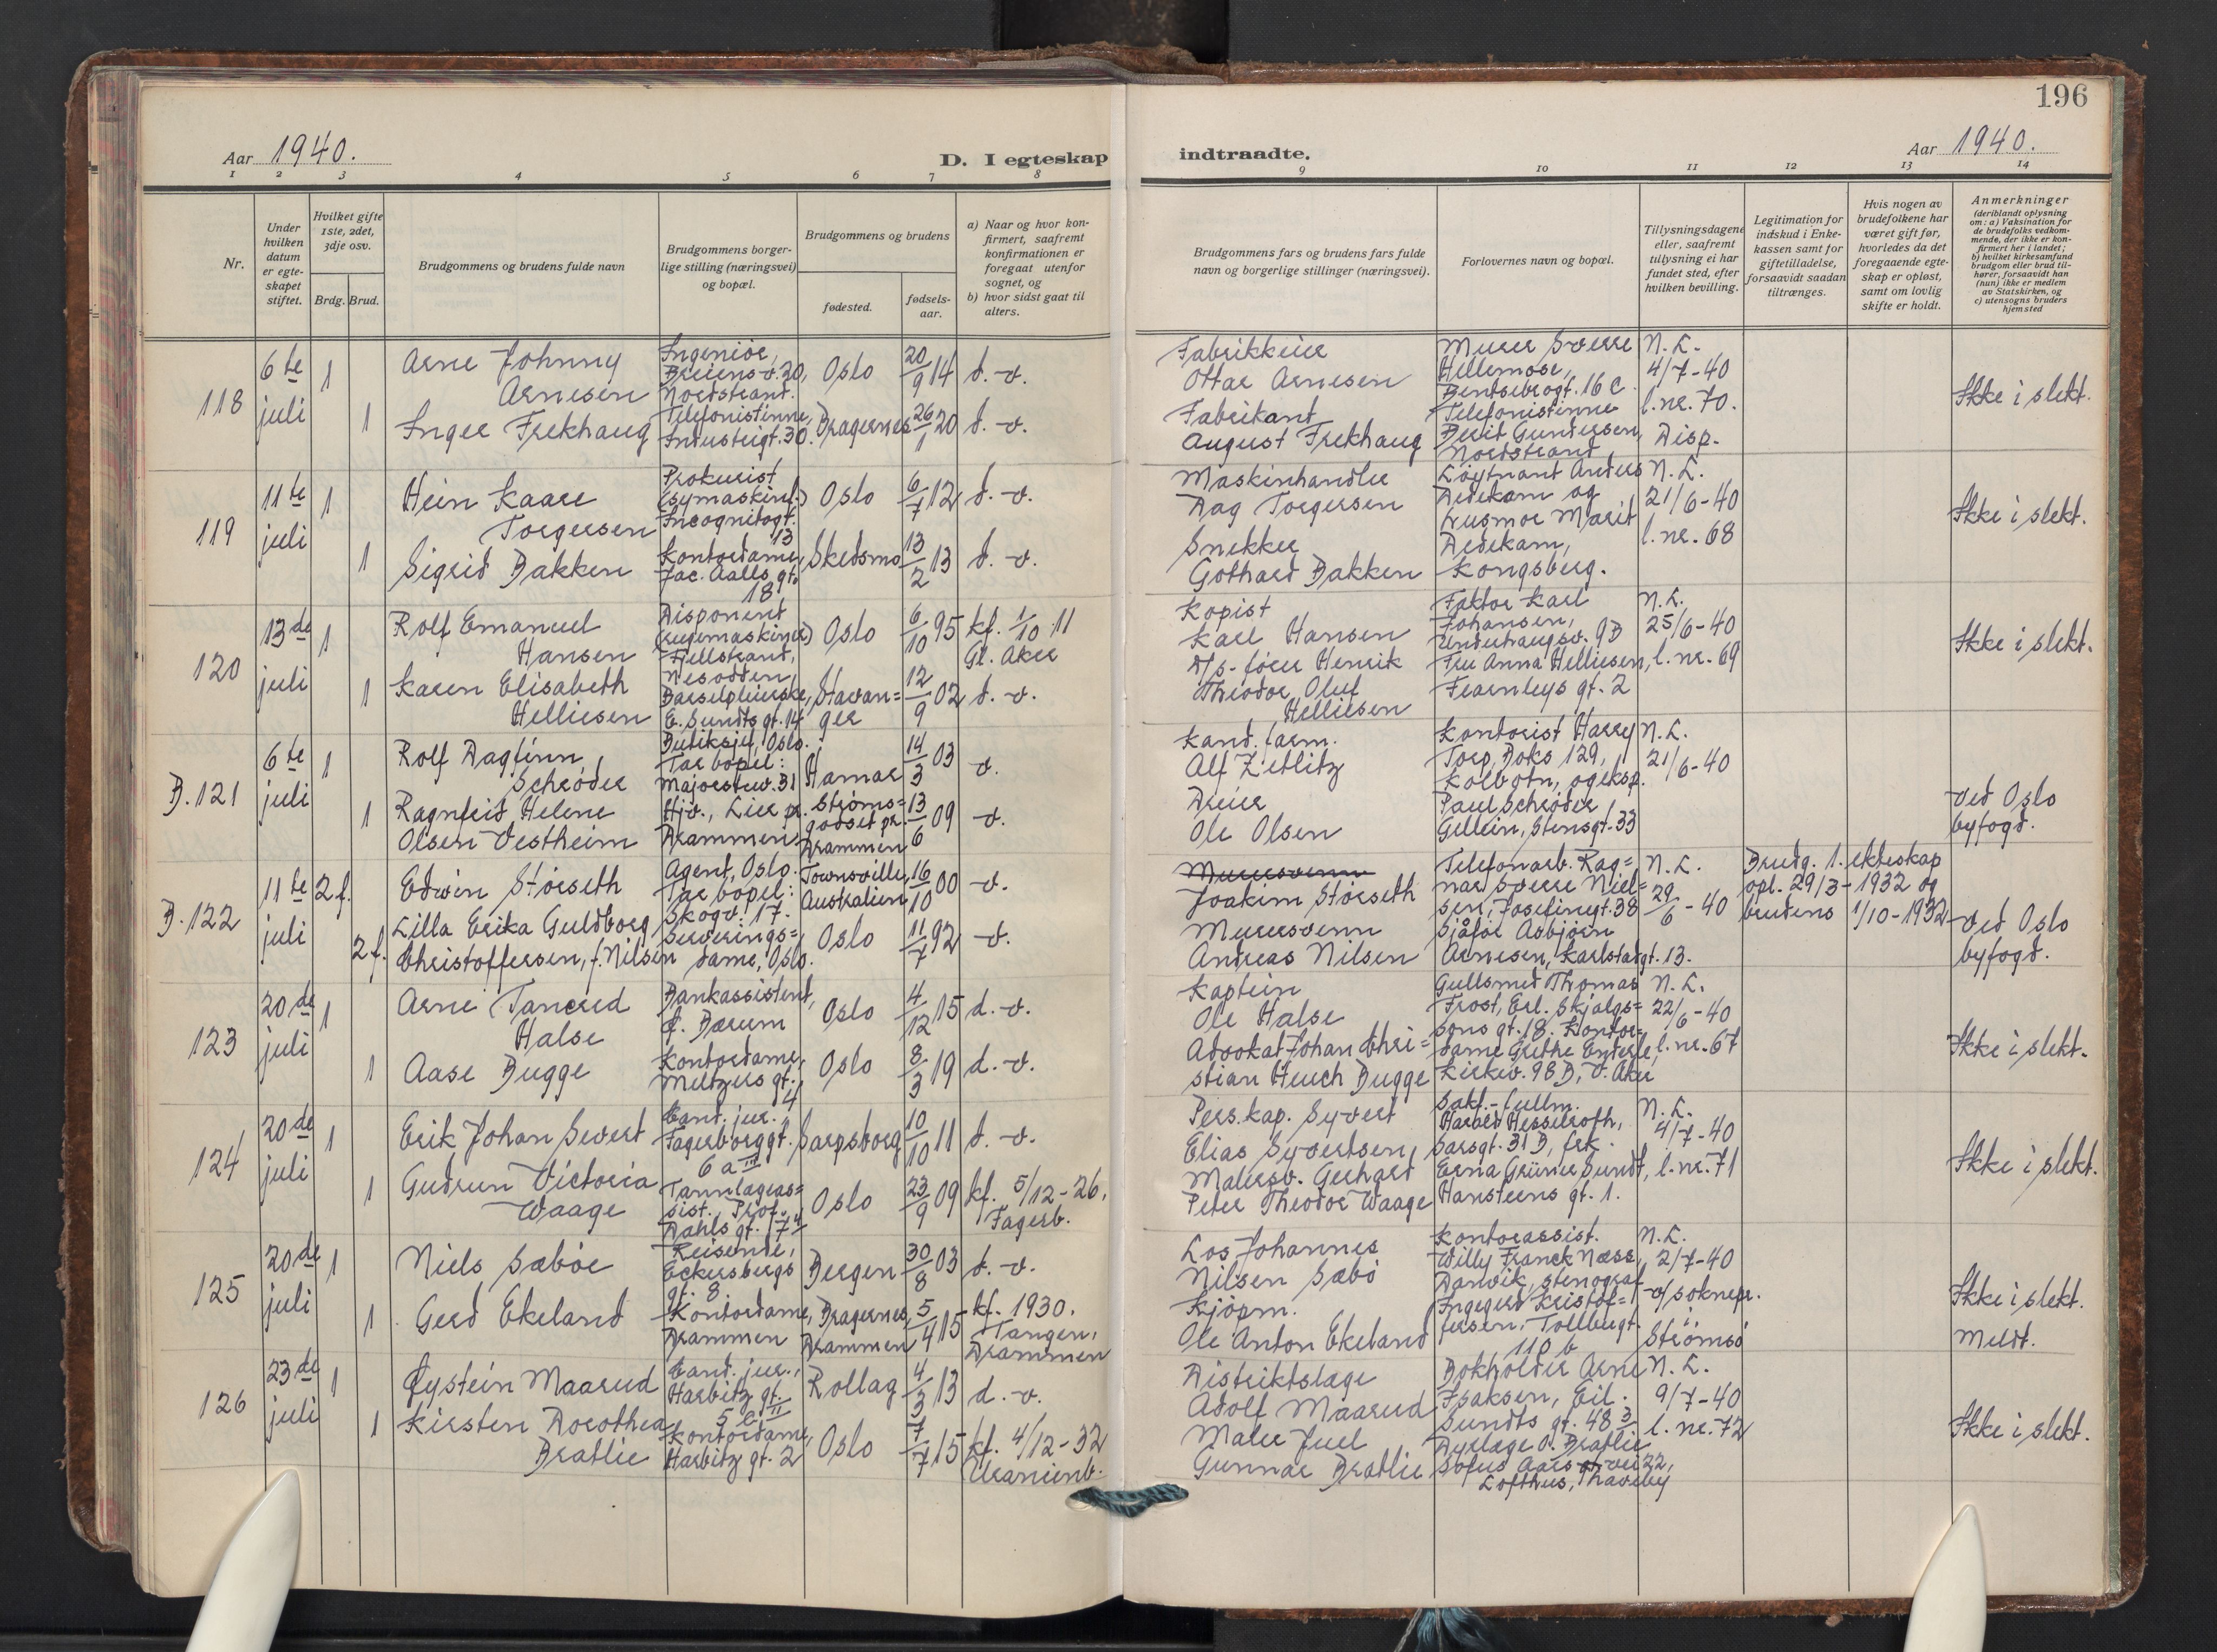 196
Aar 1940.
D. I egteskap
indtraadte.
Aar 1940.
1 2 3 4 5 6 7 8
9 10 11 12 13 14
Nr.
Under hvilken datum er egte-skapet stiftet.
Hvilket gifte 1ste, 2det, 3dje osv.
Brdg. Brud.
Brudgommens og brudens fulde navn
Brudgommens borger-lige stilling (næringsvei) og bopæl.
Brudgommens og brudens
fødested.
fødsels-aar.
a) Naar og hvor kon-firmert, saafremt konfirmationen er foregaat utenfor sognet, og
b) hvor sidst gaat til alters.
Brudgommens fars og brudens fars fulde navn og borgerlige stillinger (næringsvei).
Forlovernes navn og bopæl.
Tillysningsdagene eller, saafremt tillysning ei har fundet sted, efter hvilken bevilling.
Legitimation for indskud i Enke-kassen samt for giftetilladelse, forsaavidt saadan tiltrænges.
Hvis nogen av brudefolkene har været gift før, hvorledes da det foregaaende egte-skap er opløst, samt om lovlig skifte er holdt.
Anmerkninger
(deriblandt oplysning om: a) Vaksination for de brudefolks vedkom-mende, der ikke er kon-firmert her i landet; b) hvilket kirkesamfund brudgom eller brud til-hører, forsaavidt han (hun) ikke er medlem av Statskirken, og c) utensogns bruders hjemsted
118
6te juli
1
Arne Johnny Arnesen
Ingeniør, Breiens v. 20, Nordstrand.
Oslo
20/9 14
d. - v.
1
Inger Frekhaug
Telefonistinne, Industrigt. 30.
Bragernes
26/1 20
d. - v.
Fabrikkeier
Ottar Arnesen
Fabrikant
August Frekhaug
Murer Sverre Hillemose, Bentsebrogt. 16 c
Telefonistinne Berit Gundersen, Nordstrand
N. L.
4/7-40
l. nr. 70.
Disp.
Ikke i slekt.
119
11te juli
1
Hein Kaare Torgersen
Prokurist (symaskinf.) Incognitogt. 13
Oslo
6/7 12
d. - v.
1
Sigrid Bakken
Kontordame, Jac. Aalls gt. 18
Skedsmo
13/2 13
d. - v.
Maskinhandler
Dag Torgersen
Snekker
Gothard Bakken
Løytnant Anders Dedekam og husmor Marit Dedekam, Kongsberg.
N. L.
21/6-40
l. nr. 68
Ikke i slekt.
120
13de juli
1
Rolf Emanuel Hansen
Disponent Fjellstrand, Nesodden
Oslo
6/10 95
kf. 1/10 11 Gl. Aker
1
Karen Elisabeth Helliesen
Barselpleierske, E. Sundts gt. 14
Stavan=ger
12/9 02
d. - v.
Kopist
Karl Hansen
D/s-fører Henrik Theodor Oluf Helliesen
Faktor Karl Johansen, Underhaugsv. 9B
Fru Anna Helliesen, Fearnleys gt. 2
N. L.
25/6-40
l. nr. 69
Ikke i slekt.
B. 121
6te juli
1
Rolf Dagfinn Schrøder
Butiksj., Oslo. Tar bopel: Majorstuv. 31
Hamar
14/3 03
v.
1
Ragnfrid Helene Olsen Vestheim
Hjv., Lier pr. Drammen.
Strøms=godset pr. Drammen
13/6 09
v.
Kand. farm.
Alf Zetlitz
Dreier
Ole Olsen
Kontorist Harry Torp, Boks 129, Kolbotn, og eksp. Paul Schrøder Gellein, Stensgt. 33
N. L.
21/6-40
ved Oslo byfogd.
B. 122
11te juli
2 f.
Edwin Størseth
Agent, Oslo. Tar bopel: Skogv. 17.
Townsville, Australien
16/10 00
v.
2 f.
Lilla Erika Guldborg Christoffersen, f. Nilsen
Serverings=dame, Oslo.
Oslo
11/7 92
v.
Murersvenn
Joakim Størseth
Murersvenn
Andreas Nilsen
Telefonarb. Rag=nar Sverre Niel=sen, Josefinegt. 38
Sjåfør Asbjørn Arnesen, Karlstadgt. 13.
N. L.
29/6-40
Brudg. 1. ekteskap opl. 29/3-1932 og brudens 1/10-1932
ved Oslo byfogd.
123
20de juli
1
Arne Tancred Halse
Bankassistent, d. Bærum
Oslo
4/12 15
d. - v.
1
Aase Bugge
Kontordame, Meltzers gt. 4
Oslo
8/3 19
d. - v.
Kaptein
Ole Halse
Advokat Johan Chri=stian Heuch Bugge
Gullsmed Thomas Frost, Erl. Skjalgs=sons gt. 18. Kontor=dame Grethe Enderle, Kirkev. 98 B, V. Aker
N. L.
22/6-40
l. nr. 67
Ikke i slekt.
124
20de juli
1
Erik Johan Sivert
Cand. jur., Fagerborggt. 6 a III
Sarpsborg
10/10 11
d. - v.
1
Gudrun Victoria Waage
Tannlegeas=sist., Prof. Dahls gt. 7
Oslo
23/9 09
kf. 5/12-26, Fagerb.
Pers. kap. Syvert
Elias Syvertsen,
Malersv. Gerhard
Peter Theodor Waage
Sakf.-fullm. Harald Hesselroth, Sarsgt. 31 B, frk. Erna Grüner Sundt, Hansteens gt. 1.
N. L.
4/7-40
l. nr. 71
Ikke i slekt.
125
20de juli
1
Niels Sæbøe
Reisende, Eckersbergs gt. 8
Bergen
30/8 03
d. - v.
1
Gerd Ekeland
Kontordame, Drammen
Bragernes, Drammen
5/4 15
kf. 1930. Tangen, Drammen
Los Johannes
Nilsen Sæbö
Kjøpm.
Ole Anton Ekeland
Kontorassist. Willy Franck Næss, Danvik, stenograf Ingegerd Kristof=fersen, Tollbugt. 110 b
N. L.
2/7-40
v/ soknepr. i Strømsø
Ikke i slekt.
Meldt.
126
23de juli
1
Øystein Maarud
Cand. jur., Harbitz gt. 5
Rollag
4/3 13
d. - v.
1
Kirsten Dorothea Bratlie
Kontordame, Harbitz gt. 2
Oslo
7/7 15
kf. 4/12-32 Uranienb.
Distriktslege
Adolf Maarud
Maler Juel
Gunnar Bratlie
Bokholder Arne Isaksen, Eil. Sundts gt. 48
Dyrlege O. Bratlie Sofus Aars vei 22, Lofthus, Thaasby
N. L.
9/7-40
l. nr. 72
Ikke i slekt.